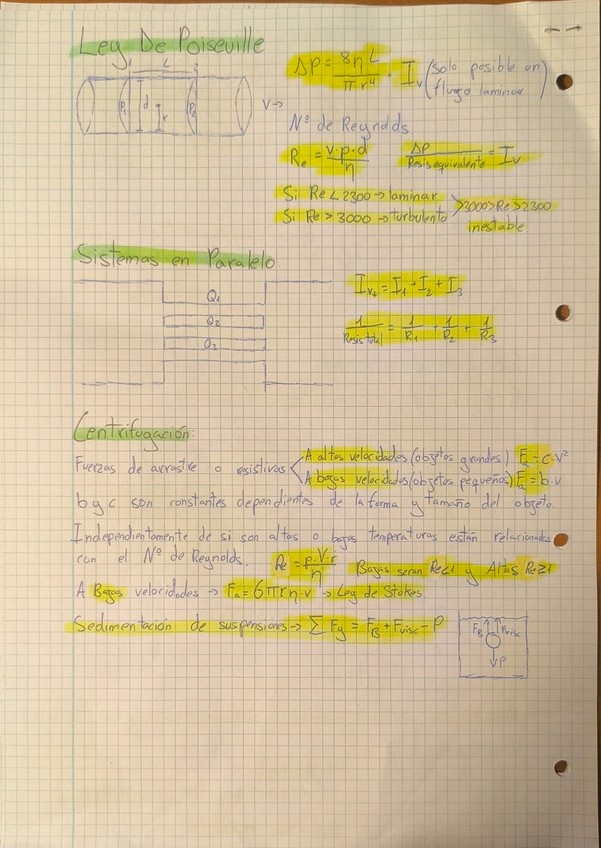 Ley De Poiseville
1 L 2
P₁ d r P₂ V→
ΔP = 8η L / π·r⁴ · Iᵥ (Solo posible en flugo laminar)
Nº de Reynolds
Rₑ = v·ρ·d / η
ΔP / Resis equivalente = Iᵥ
Si Re < 2300 → laminar
Si Re > 3000 → turbulento
3000 > Re > 2300
inestable
Sistemas en Paralelo
Q₁
Q₂
Q₃
Iᵥₜ = I₁ + I₂ + I₃
1 / Resis total = 1/R₁ + 1/R₂ + 1/R₃
Centrifugación:
Fuerzas de arrastre o resistivas
A altas velocidades (objetos grandes) Fₐ = c·v²
A bagas velocidades (objetos pequeños) Fₐ = b·v
b y c son constantes dependientes de la forma y tamaño del objeto.
Independientemente de si son altas o bagas temperaturas están relacionados
con el Nº de Reynolds. Re = ρ·V·r / η Bagas seran Re<1 y Altas Re≥1
A Bagas velocidades → Fₐ = 6πrη·v → Ley de Stokes
Sedimentación de suspensiones → ∑ Fy = F_B + Fvisc − P
F_B Fvisc
P